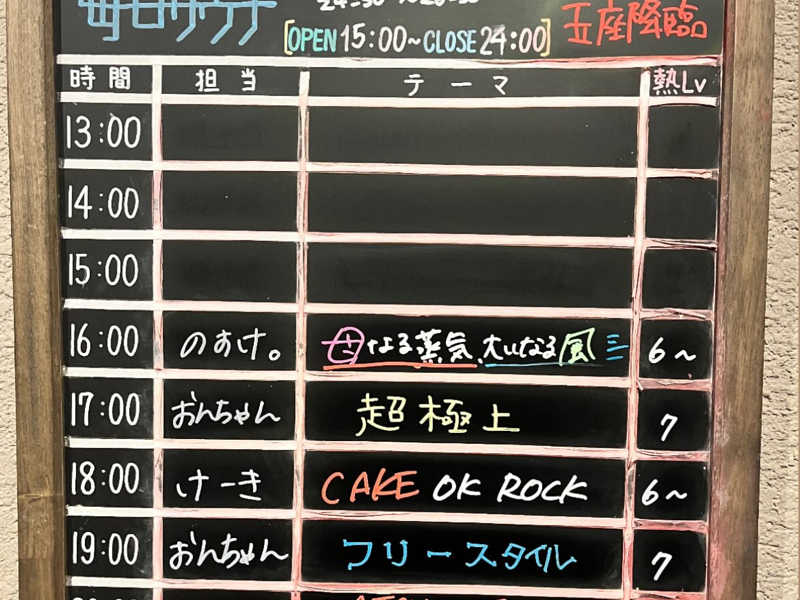 毎日サウナ
[OPEN 15:00~CLOSE 24:00]
玉座降臨
時間 担当 テーマ 熱Lv
13:00
14:00
15:00
16:00 のすけ。 母なる蒸気、大いなる風 6~
17:00 おんちゃん 超極上 7
18:00 けーき CAKE OK ROCK 6~
19:00 おんちゃん フリースタイル 7